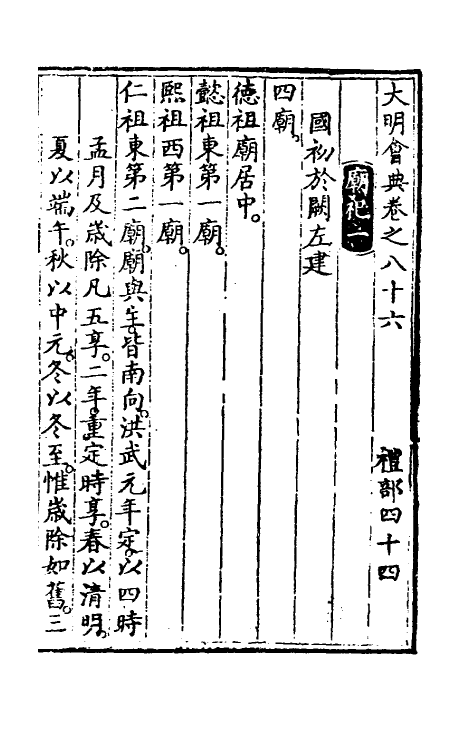 大明會典卷之八十六　禮部四十四
廟祀一
國初於闕左建
四廟。
德祖廟居中。
懿祖東第一廟。
熙祖西第一廟。
仁祖東第二廟。廟與主。皆南向。洪武元年定。以四時
孟月及歲除凡五享。二年。重定時享。春以清明。
夏以端午。秋以中元。冬以冬至。惟歲除如舊。三